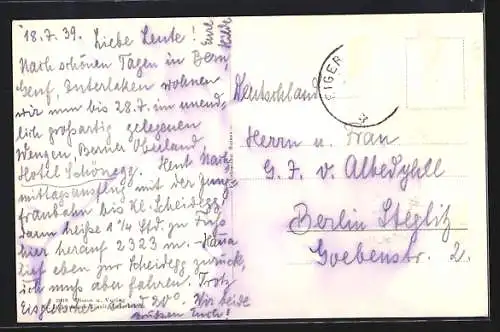 18.7.39. Liebe Leute!
Nach schönen Tagen in Bern,
Genf, Interlaken wohnen
wir nun bis 28.7. im unend-
lich großartig gelegenen
Wengen, Berner Oberland,
Hotel Schönegg. Heut Nach-
mittagsausflug mit der Jung-
fraubahn bis Kl. Scheidegg,
dann heiße 1 1/4 Std. zu Fuß
hier herauf 2323 m.
lief eben zur Scheidegg zurück,
ich muß aber fahren. Trotz
Eisgletscher 20°. Wir beide
grüßen Euch!
Eure
Hilde
EIGER
Deutschland
Herrn u. Frau
G. F. v. Albedyhll
Berlin Steglitz
Goebenstr. 2.